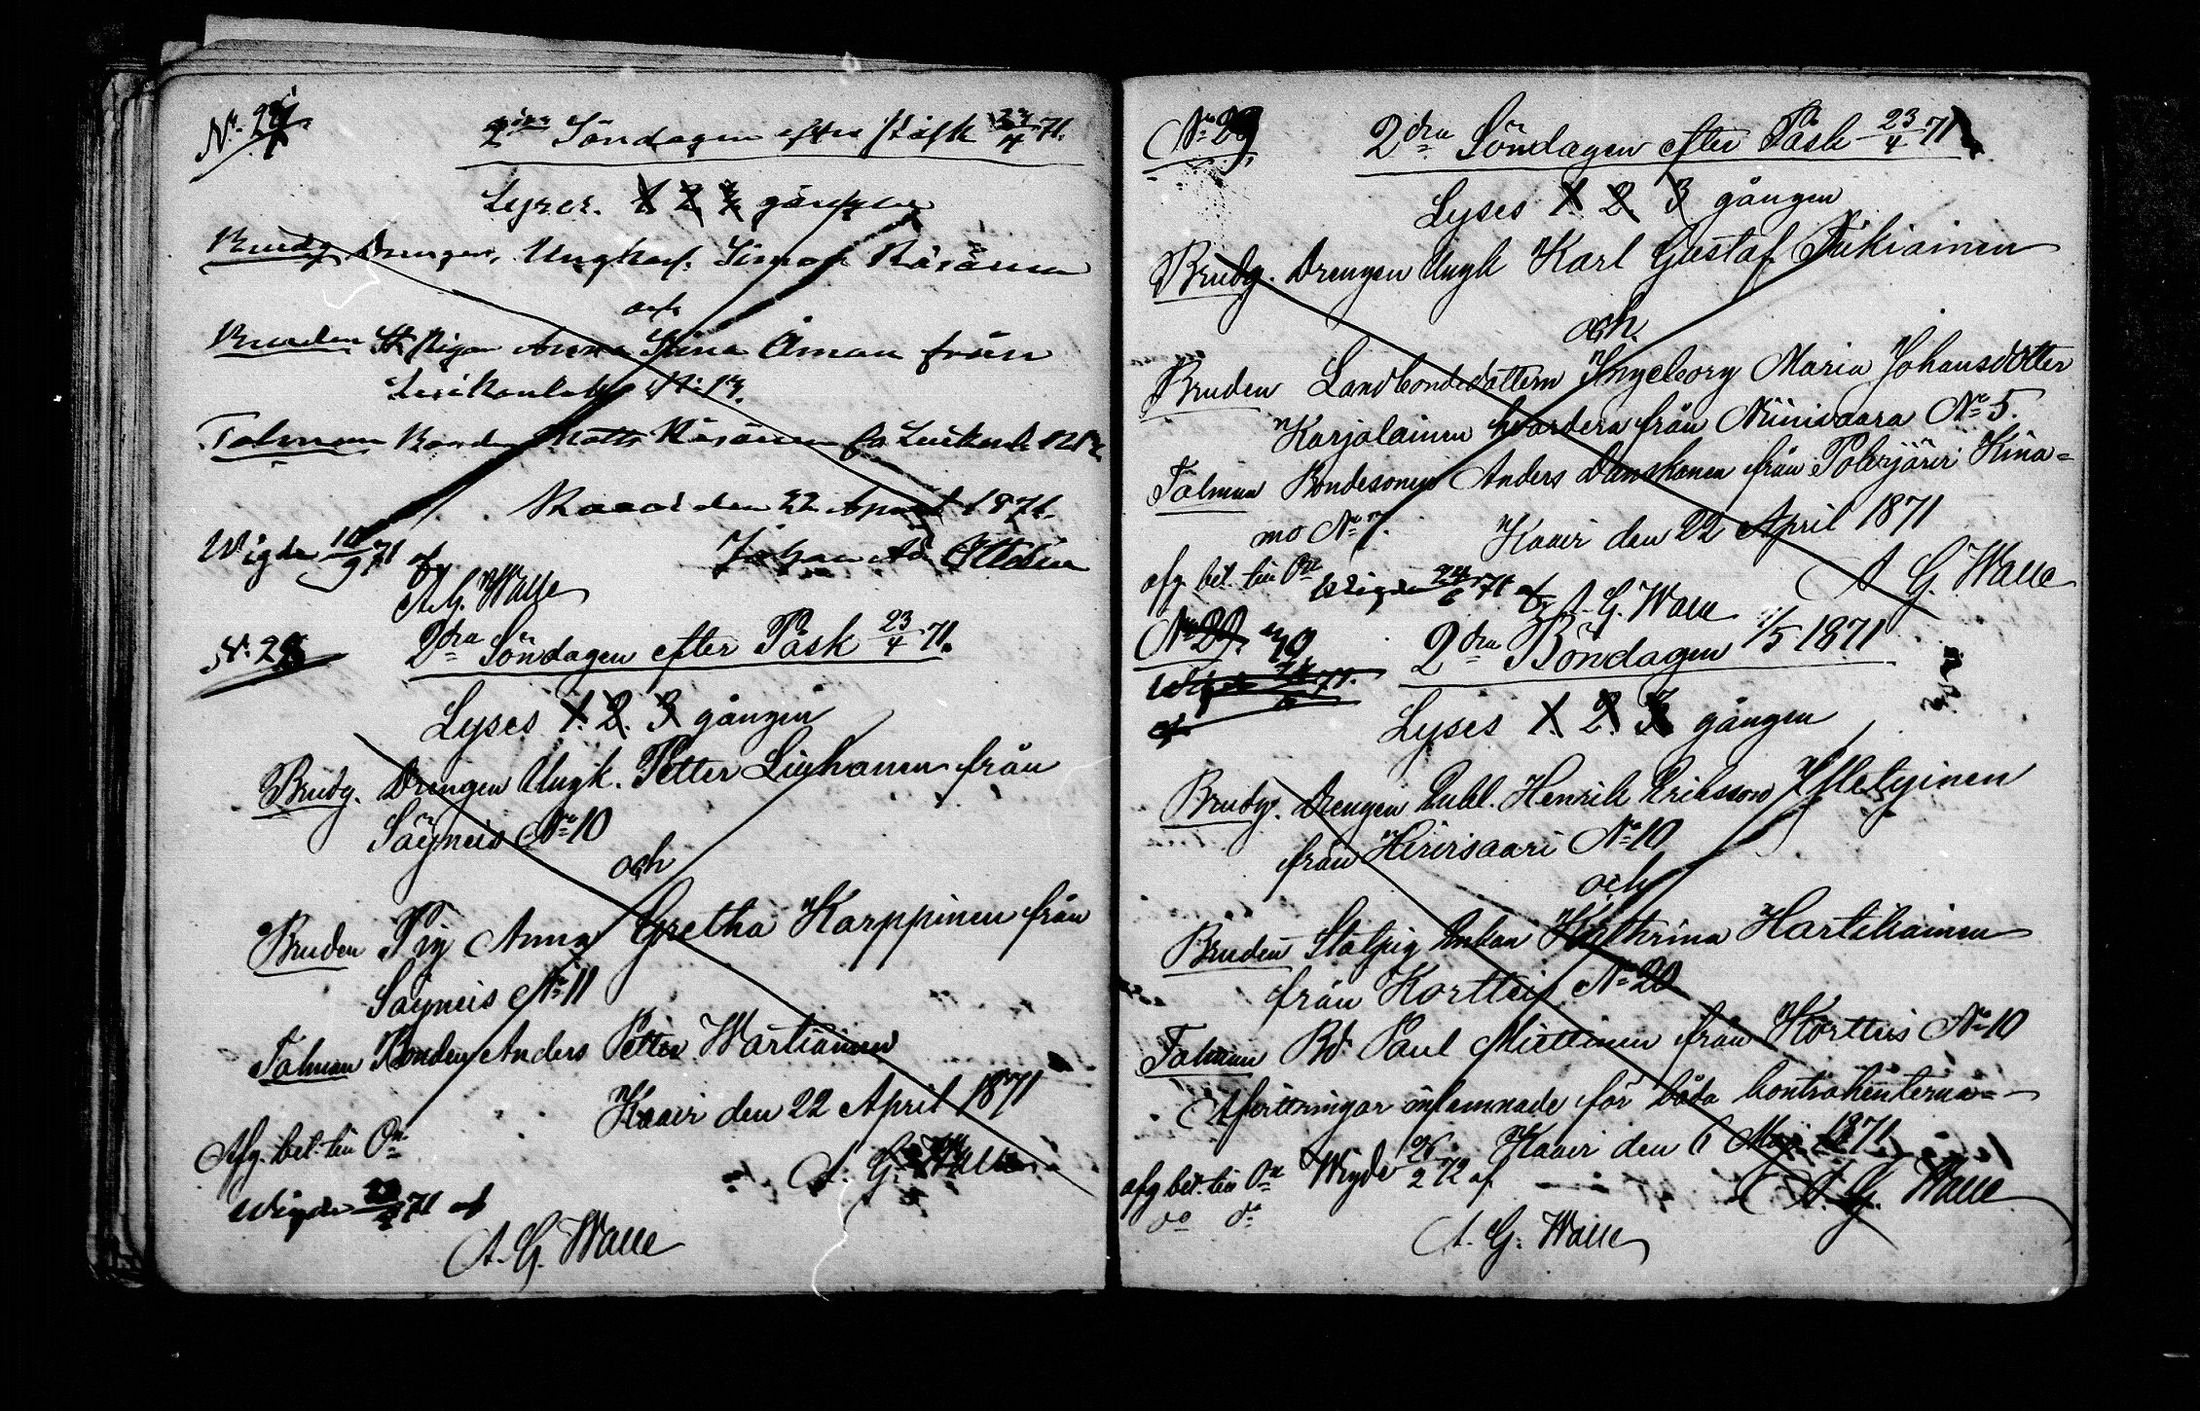 Söndagen efter Påsk 23/4 71.
Lyses. 1. 2. 3 gången
Brudg. Drengen, Ungkarl. Simon Räsänen
och
Bruden St. Pigan Anna Stina Öman från
Talman Bonden Matts Räsänen
Kaavi den 22 April 1871.
Wigde 10/9 71 af
Johan Ad.
A. G. Walle
2dra Söndagen efter Påsk 23/4 71.
Lyses 1. 2. 3 gången
Brudg. Drengen Ungk. Petter Liuhanen från
Säyneis No 10
och
Bruden Pig Anna Gretha Karppinen från
Säyneis No 11
Talman Bonden Anders Petter Wartiainen
Kaavi den 22 April 1871
Afg. bet.
A. G. Walle
Wigde 71 af
A. G. Walle
2dra Söndagen efter Påsk 23/4 71
Lyses 1. 2. 3 gången
Brudg. Drengen Ungk Karl Gustaf Tukiainen
och
Bruden Landbondedottern Ingeborg Maria Johansdotter
Karjalainen från Niinivaara No 5.
Talman Bondesonen Anders Danskanen från Polvijärvi Kina=
mo No 7.
Kaavi den 22 April 1871
A. G. Walle
afg. bet.
Wigde 24/6 71 af A. G. Walle
2dra Böndagen /5 1871
Wigde 71.
af
Lyses 1. 2. 3 gången
Brudg. Drengen Enkl. Henrik Eriksson
från Hirvisaari No 10
och
Bruden Statpig Enkan Kathrina Hartikainen
från Korttis No 20
Talman Bd. Paul Miettinen från Korttis No 10
inlemnade för båda kontrahenterna
Kaavi den 6 Maj 1871
A. G. Walle
afg bet. Wigde 26/2 72 af
A. G. Walle